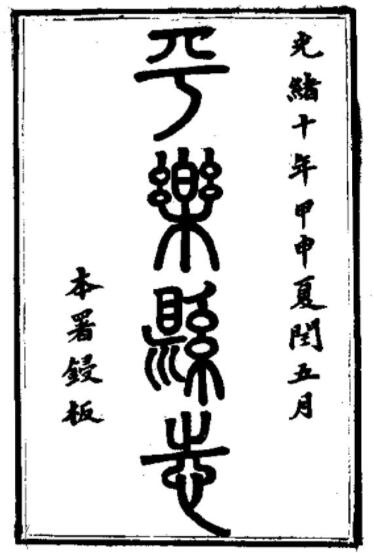 光緒十年甲申夏閏五月
平樂縣志
本署鋟板